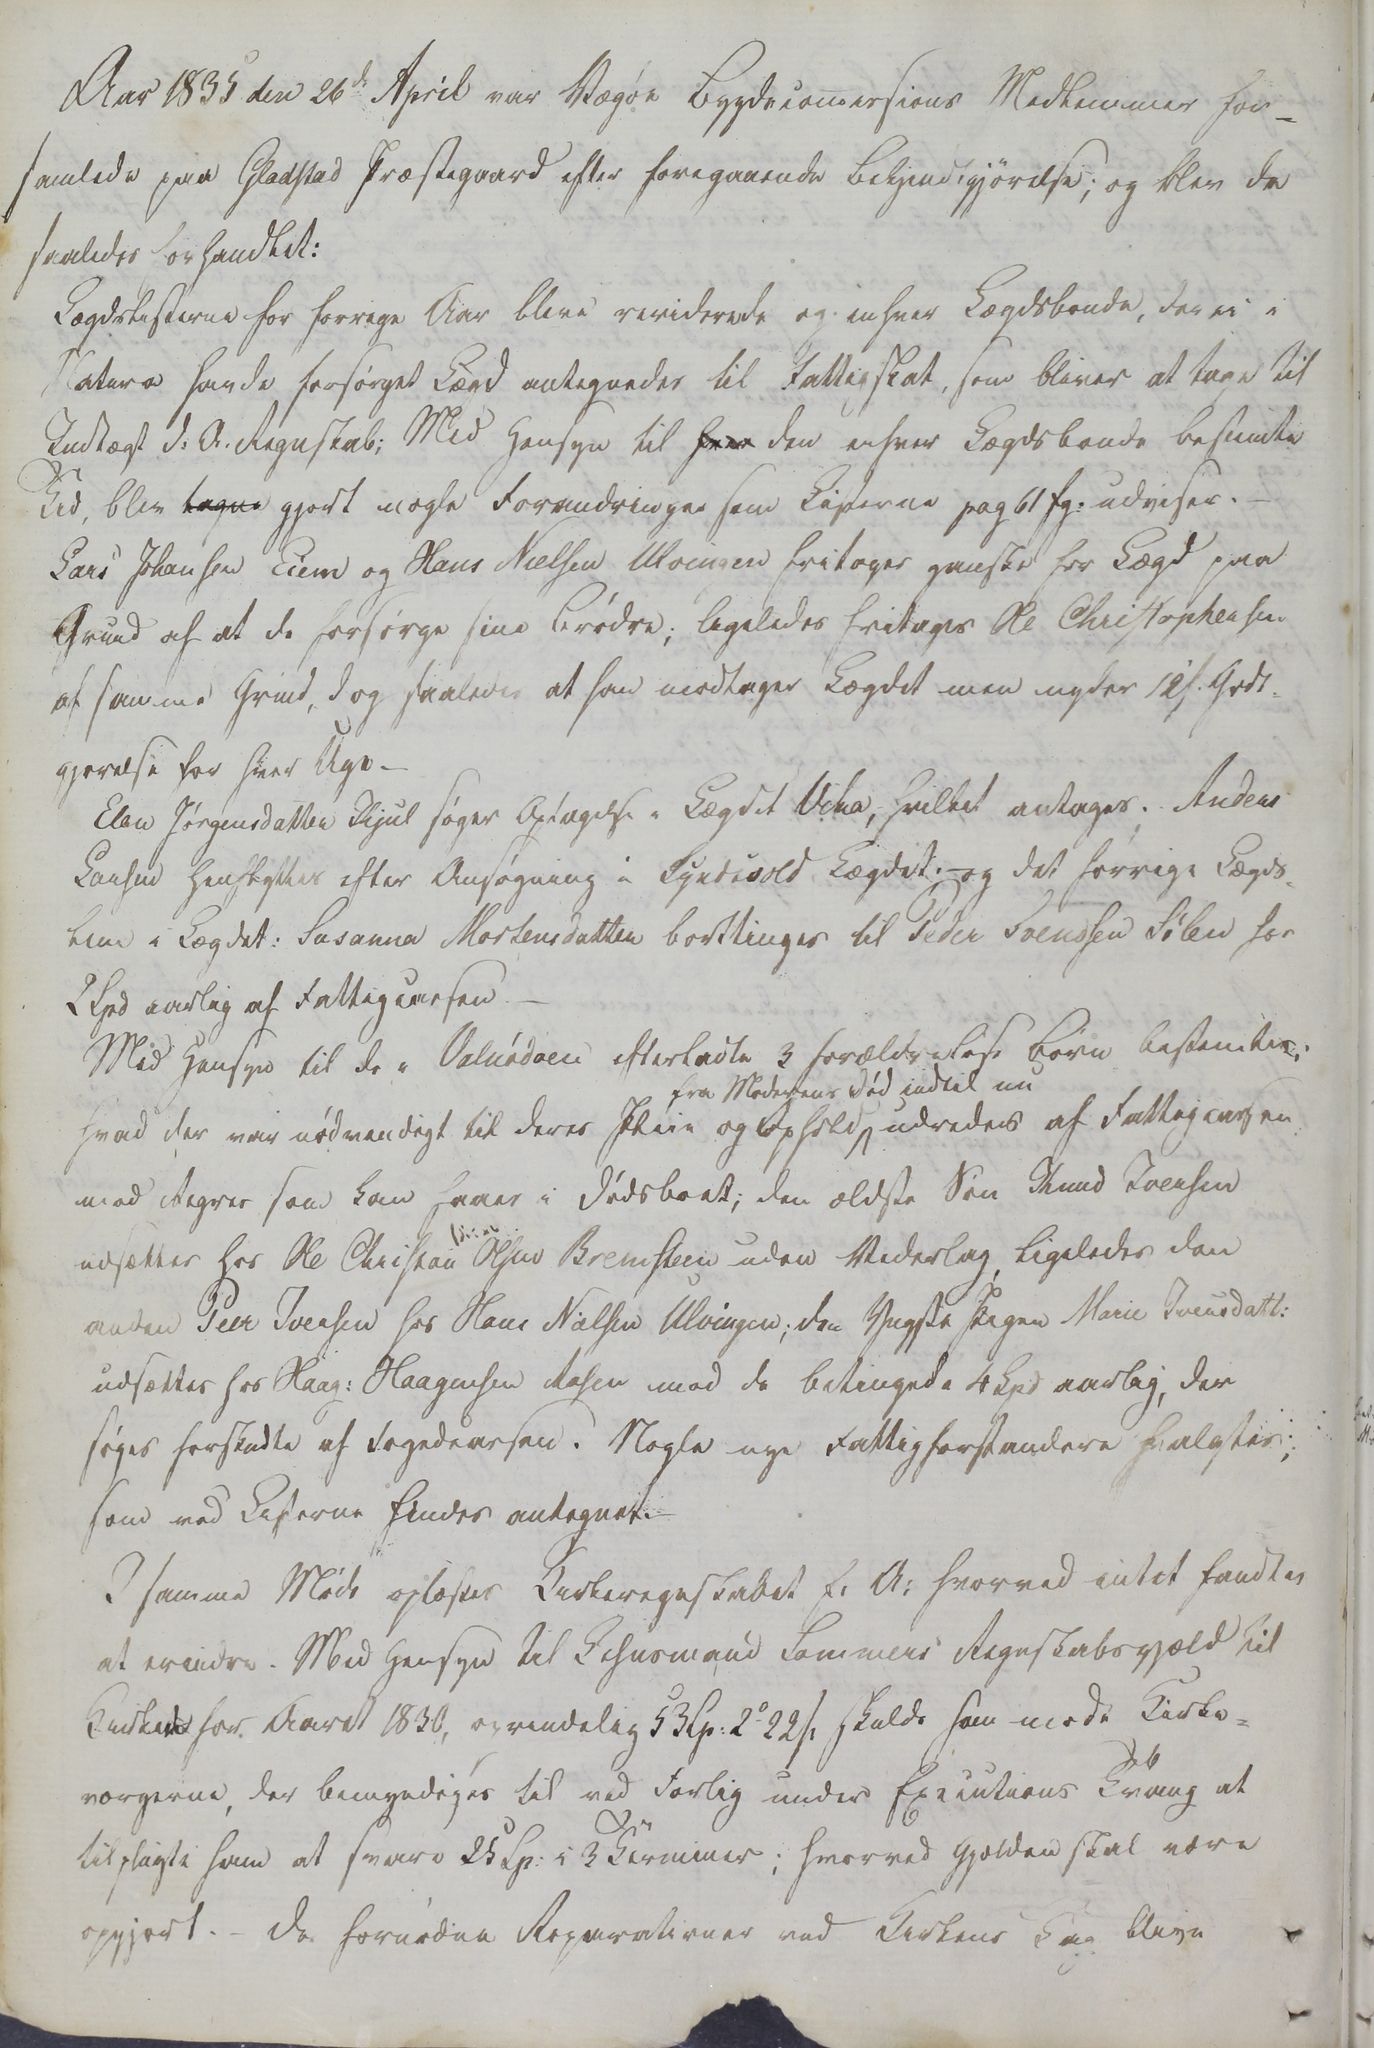 Aar 1835 den 26de April var Vægøe Bygdecommissions Medlemmer for-
samlede paa Gladstad Præstegaard efter foregaaende Bekjendtgjörelse; og blev da
saaledes forhandlet:
Lægdslisterne for forrige Aar bleve reviderede og enhver Lægdsbonde, der ei i
Natura havde forsörget Lægd antegnedes til Fattigskat, som bliver at tage til
Indtægt d: A. Regnskab; Med Hensyn til den enhver Lægdsbonde bestemte
Tid, blev tagne gjort nogle Forandringer som Listerne pag 61 fg: udviser. -
Lars Johansen Eiem og Hans Nielsen Ulvingen fritages ganske for Lægd paa
Grund af at de forsörge sine Brödre; ligeledes fritages Ole Christophersen
af samme Grund, dog saaledes at han modtager Lægdet men nyder 12 s. Godt-
gjörelse for hver Uge -
Elen Jörgensdatter Kjul söger Optagelse i Lægdet Vika, hvilket antages. Anders
Larsen henflyttes efter Ansögning i Lægdet; - og det forrige Lægds-
lem i Lægdet: Susanna Mortensdatter borttinges til Peder Svendsen Sölen for
2 Spd aarlig af Fattigcassen -
Med Hensyn til de i efterladte 3 forældrelöse Börn bestemtes:
fra Moderens Död indtil nu
hvad der var nödvendigt til deres Pleie og Ophold, udredes af Fattigcassen
mod Regres som kan haves i Dödsboet; den ældste Sön Knud Iversen
udsættes hos Ole Christian Olsen Bremsteen uden Vederlag, ligeledes den
anden Peer Iversen hos Hans Nielsen Ulvingen; den Yngste Pigen Marie Iversdatt:
udsættes hos Haag: Haagensen Aasen mod de betingede 4 Spd aarlig, der
söges forskudte af Fogedcassen. Nogle nye Fattigforstandere valgtes;
som ved Listerne findes antegnet. -
I samme Möde oplæstes Kirkeregnskabet f. A: hvorved intet fandtes
at erindre. Med Hensyn til Lehnsmand Sommers Regnskabsgjæld til
Kirken for Aaret 1830, oprindelig 53 Sp: 2 ort 22 s, skulde han möde Kirke-
værgerne, der bemyndiges til ved Forlig under Executions Tvang at
tilpligte ham at svare 25 Sp: i 3 Terminer; hvorved Gjælden skal være
opgjort. - De fornödne Reparationer ved Kirkens Tag blive